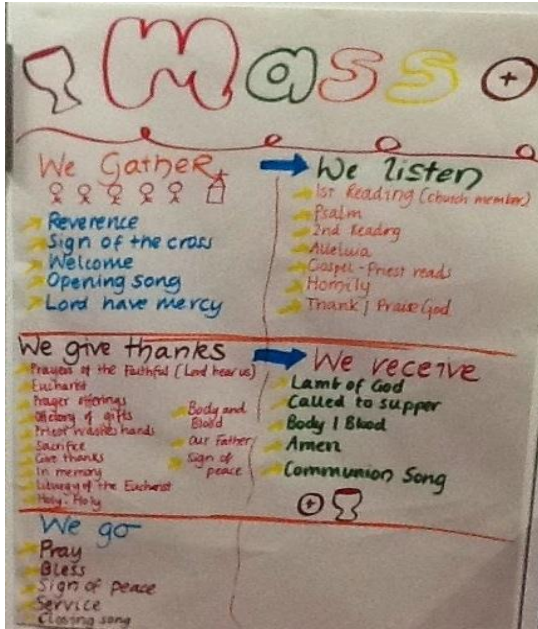 Mass
We Gather
Reverence
Sign of the cross
Welcome
Opening Song
Lord have mercy
We listen
1st Reading (church member)
Psalm
2nd Reading
Alleluia
Gospel - Priest reads
Homily
Thank / Praise God
We give thanks
Prayers of the Faithful (Lord hear us)
Eucharist
Prayer offerings
Offertory of gifts
Priest washes hands
Sacrifice
Give thanks
In memory
Liturgy of the Eucharist
Holy, Holy
Body and
Blood
Our Father
Sign of
peace
We receive
Lamb of God
Called to supper
Body / Blood
Amen
Communion Song
We go
Pray
Bless
Sign of peace
Service
Closing song